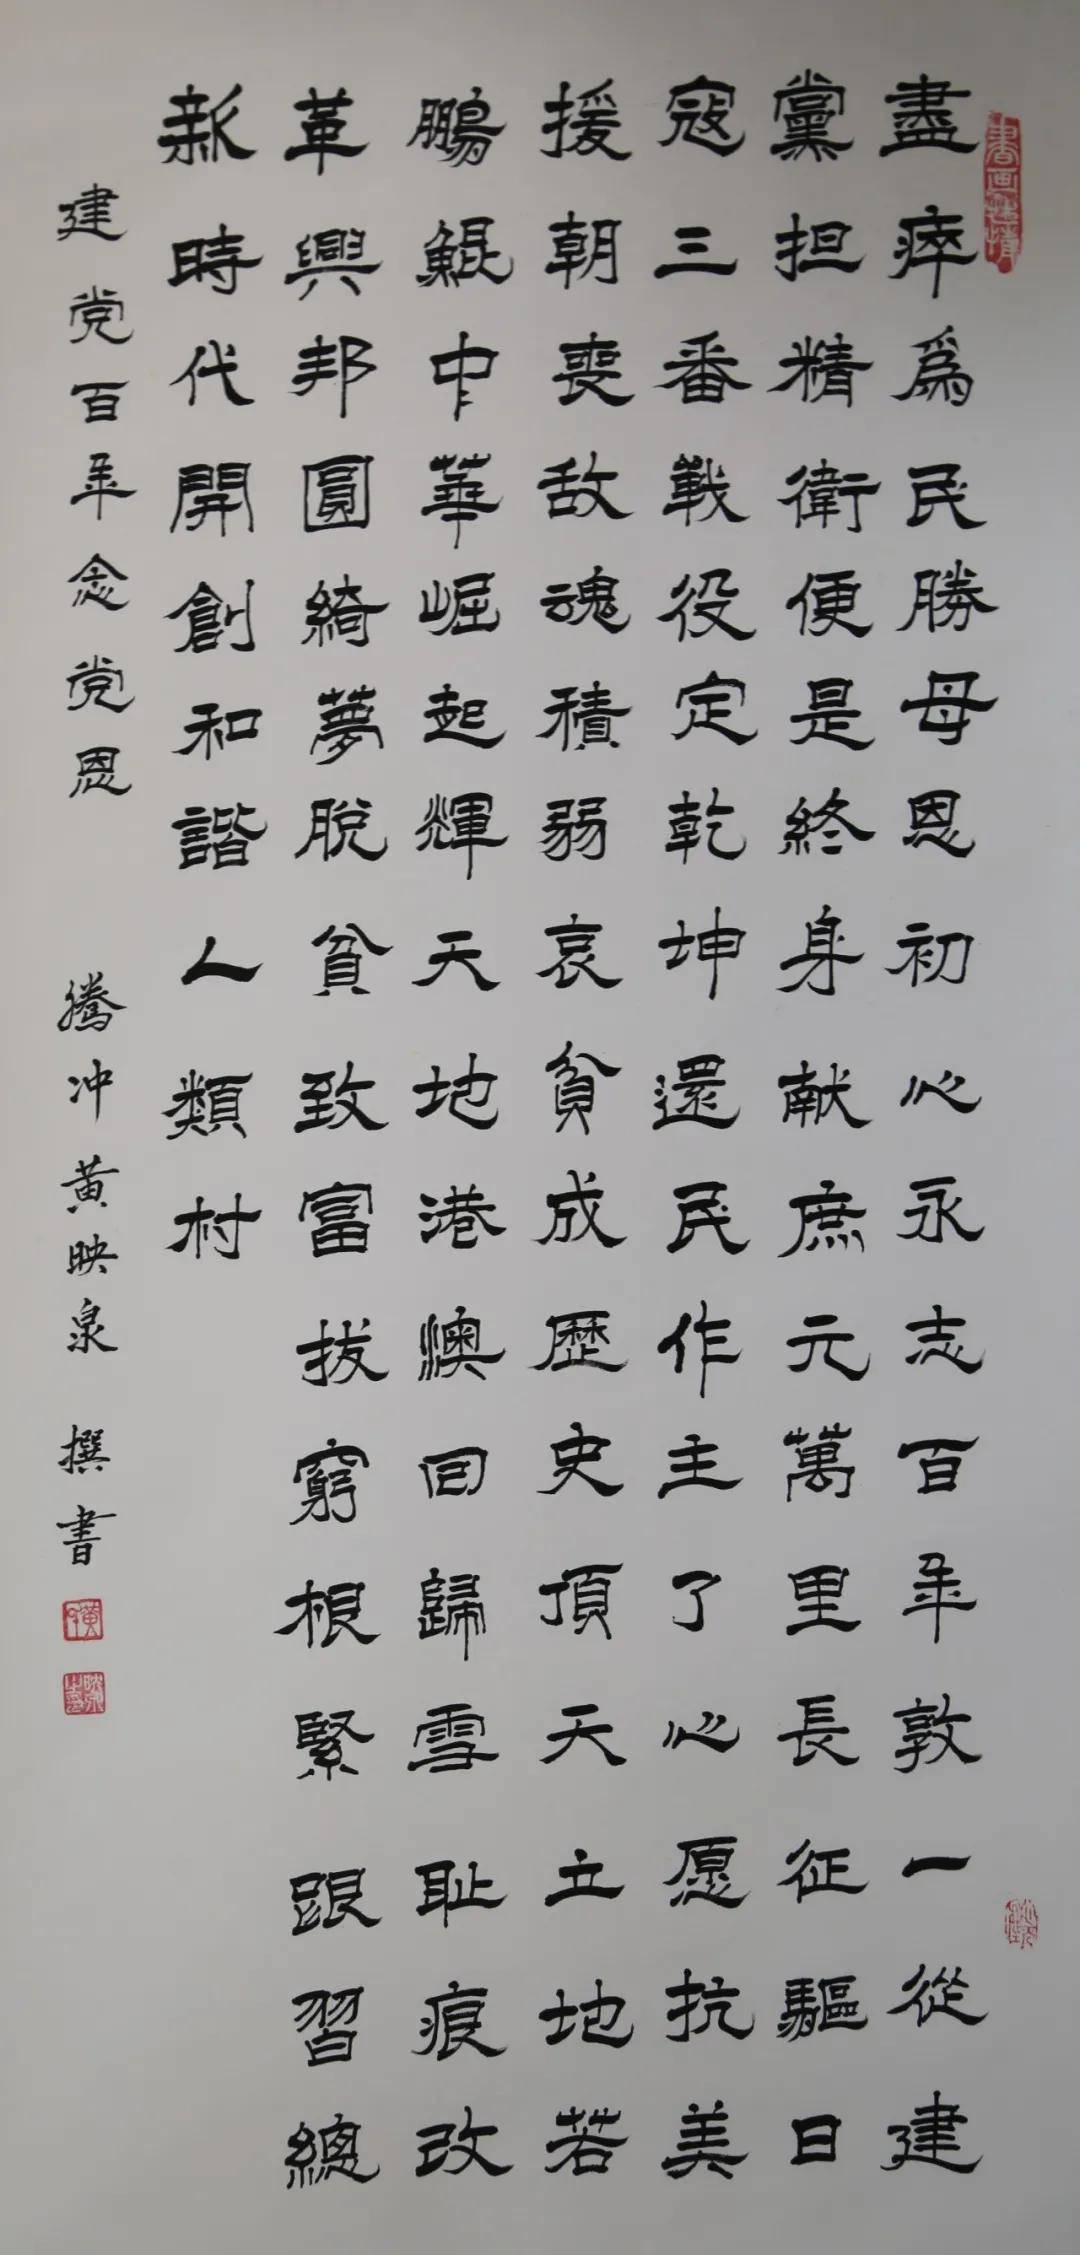 盡瘁爲民勝母恩初心永志百年敦一從建
黨担精衛便是終身献庶元萬里長征驅日
寇三番戰役定乾坤還民作主了心愿抗美
援朝喪敌魂積弱哀貧成歷史頂天立地若
鵬鯤中華崛起輝天地港澳回歸雪耻痕改
革興邦圓綺夢脫貧致富拔窮根緊跟習總
新時代開創和諧人類村
建党百年念党恩 騰冲黄映泉 撰書